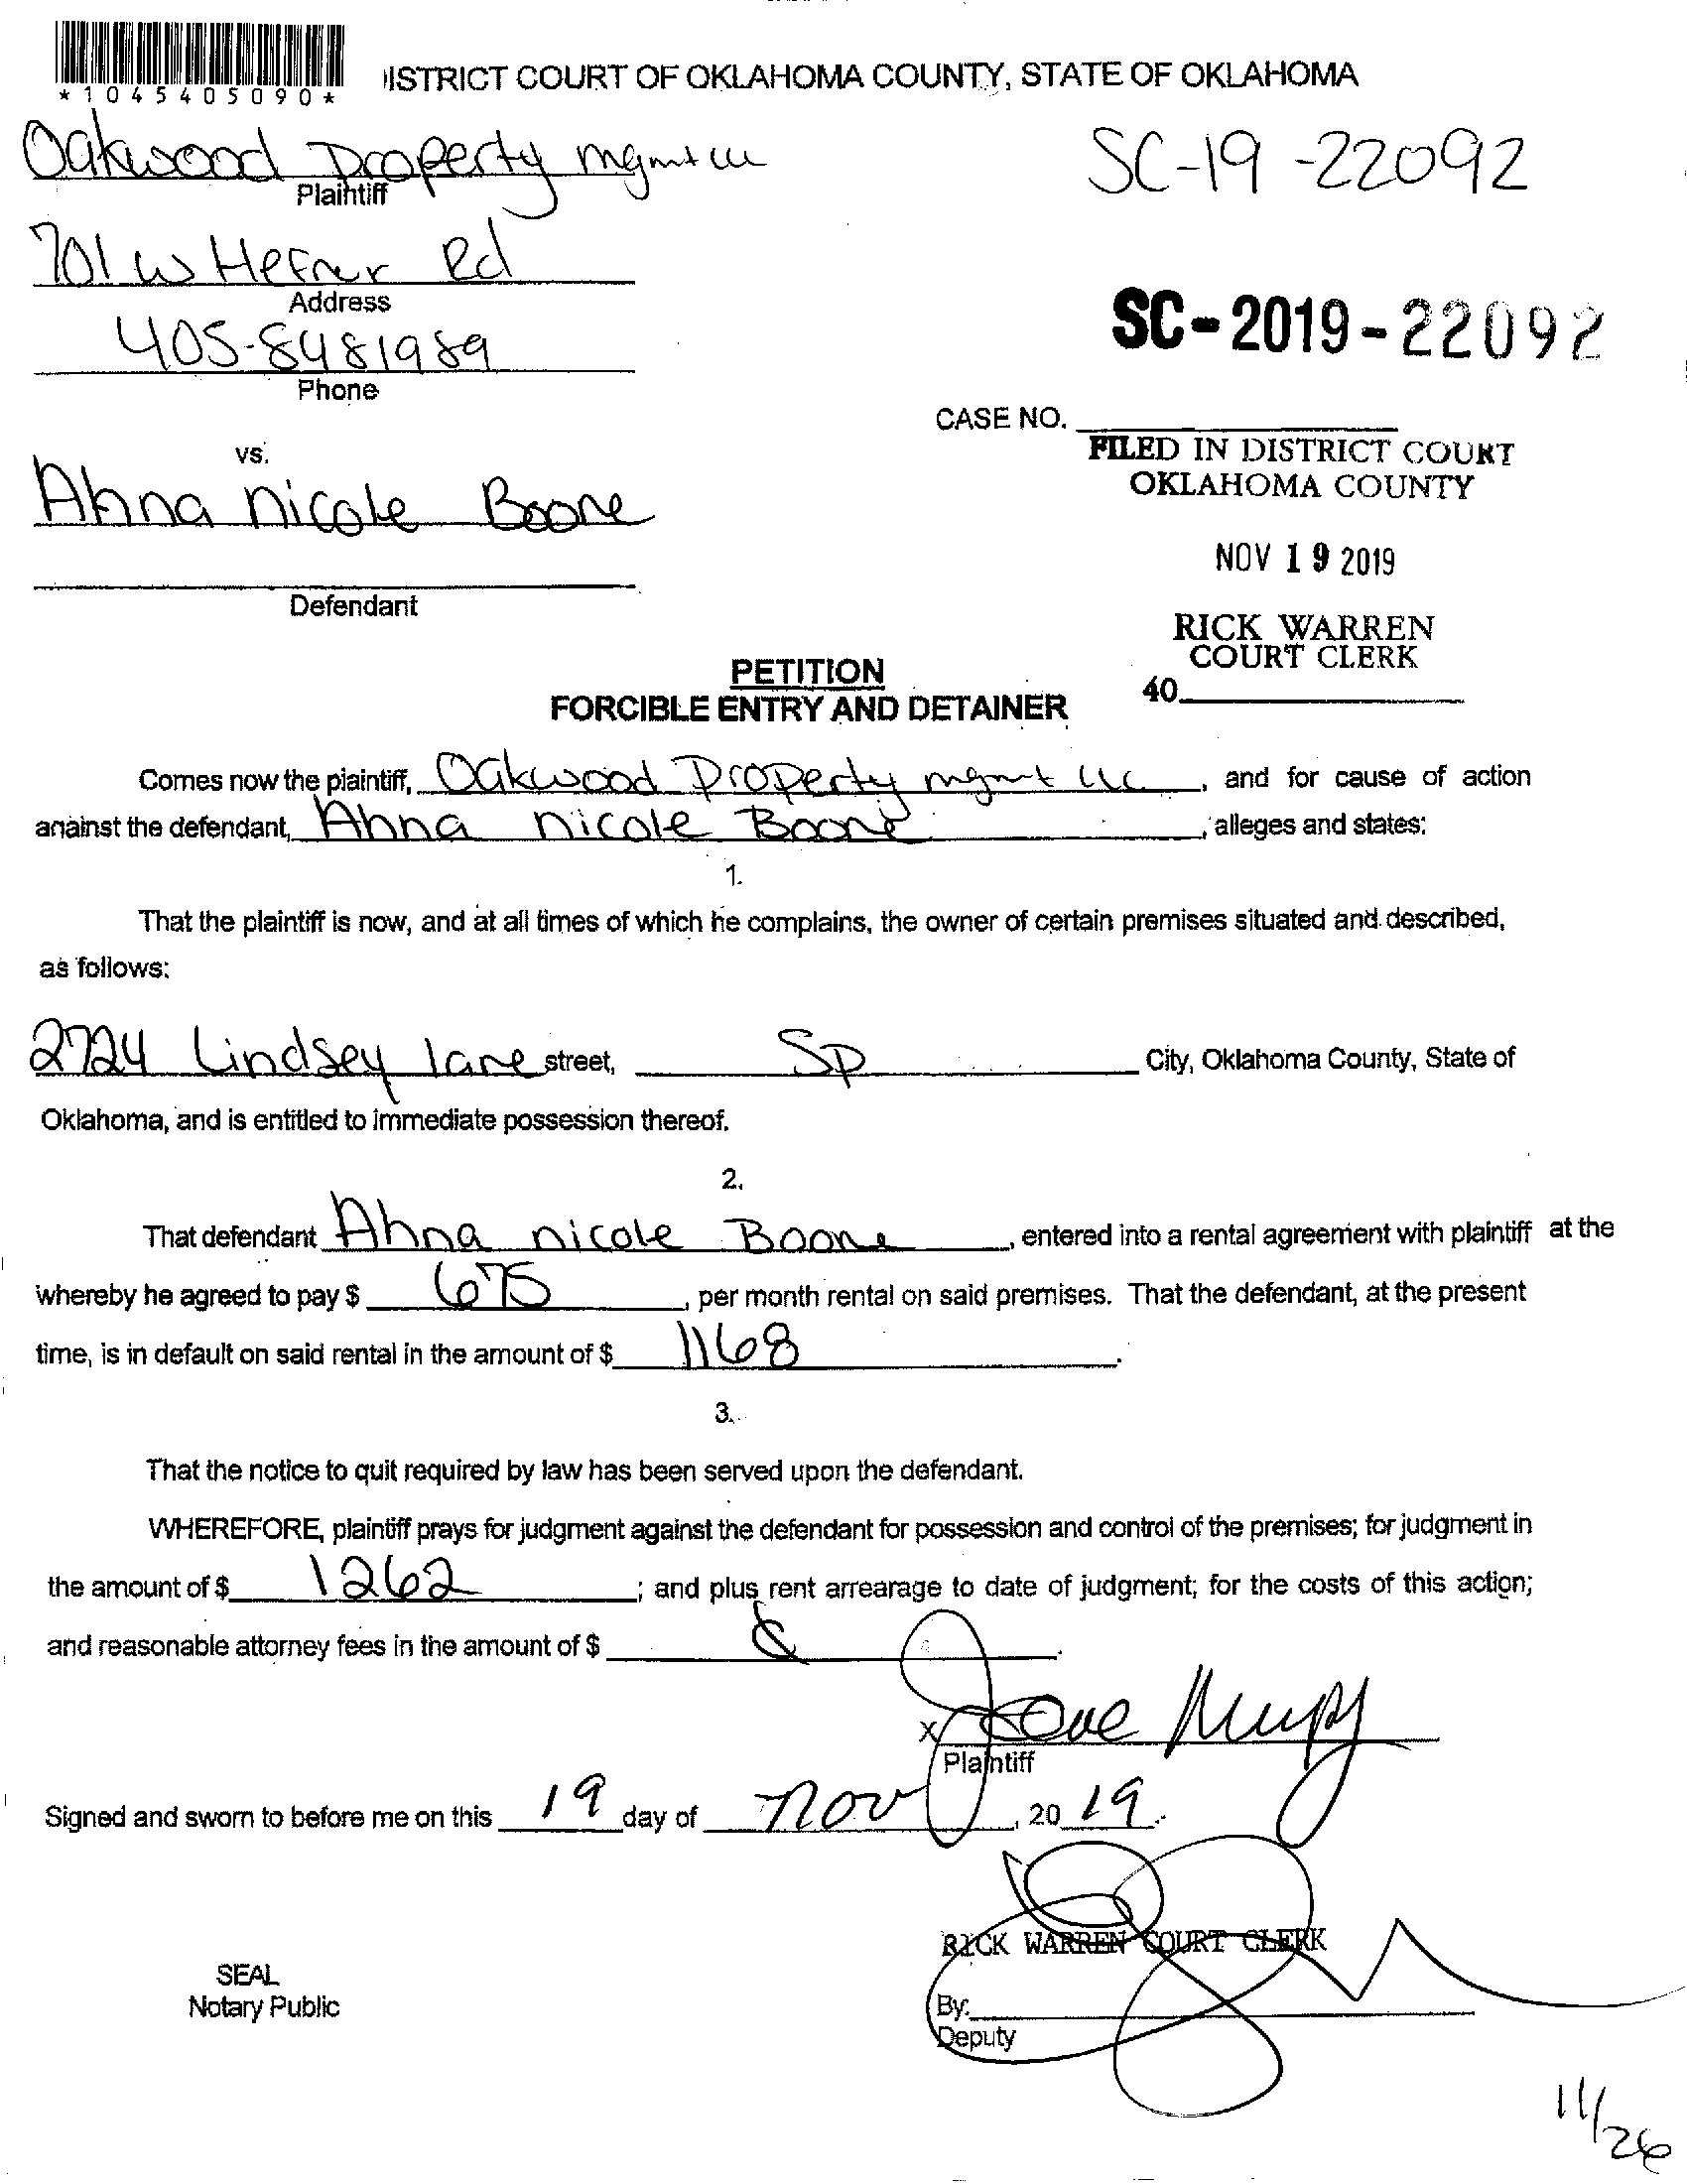 *1045405090*
ISTRICT COURT OF OKLAHOMA COUNTY, STATE OF OKLAHOMA
Oakwood Property mgmt LLC
Plaintiff
SC-19-22092
701 W Hefner Rd
Address
405-8481989
Phone
SC-2019-22092
CASE NO.
FILED IN DISTRICT COURT
OKLAHOMA COUNTY
vs.
Ahna nicole Boone
NOV 19 2019
Defendant
RICK WARREN
COURT CLERK
40
PETITION
FORCIBLE ENTRY AND DETAINER
Comes now the plaintiff, Oakwood Property mgmt LLC, and for cause of action
against the defendant, Ahna nicole Boone, alleges and states:
1.
That the plaintiff is now, and at all times of which he complains, the owner of certain premises situated and described,
as follows:
2724 Lindsey lane street, Sp City, Oklahoma County, State of
Oklahoma, and is entitled to immediate possession thereof.
2.
That defendant Ahna nicole Boone, entered into a rental agreement with plaintiff at the
whereby he agreed to pay $ 675, per month rental on said premises. That the defendant, at the present
time, is in default on said rental in the amount of $ 1168.
3.
That the notice to quit required by law has been served upon the defendant.
WHEREFORE, plaintiff prays for judgment against the defendant for possession and control of the premises; for judgment in
the amount of $ 1262; and plus rent arrearage to date of judgment; for the costs of this action;
and reasonable attorney fees in the amount of $
X
Plaintiff
Signed and sworn to before me on this 19 day of Nov, 20 19.
RICK WARREN COURT CLERK
SEAL
Notary Public
By:
Deputy
11/26